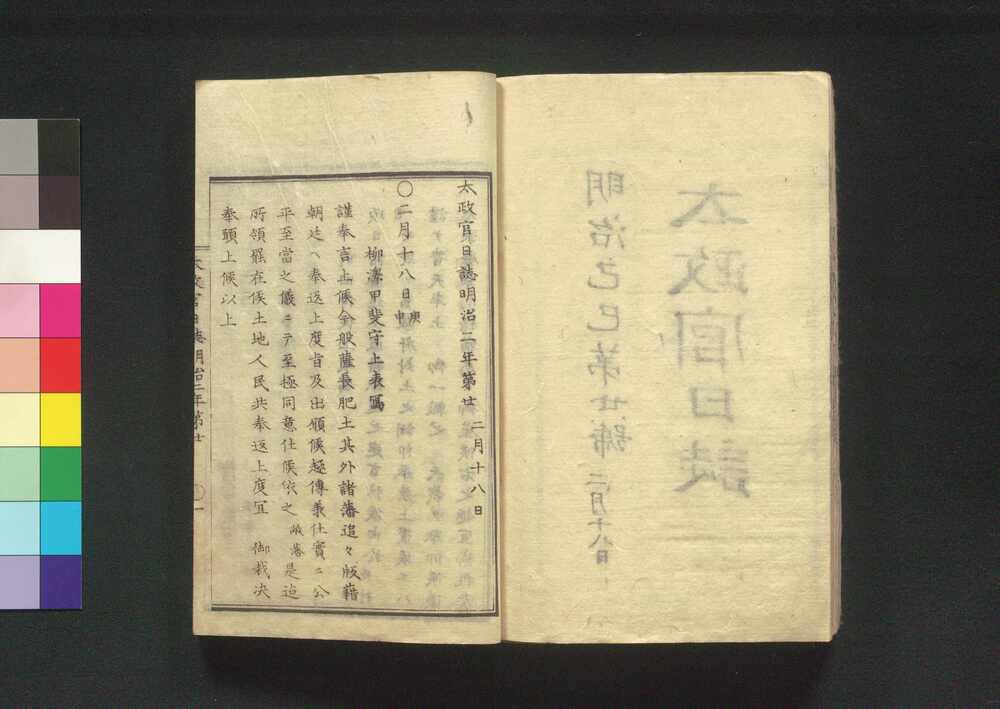 太政官日誌明治二年第廿 二月十八日
〇二月十八日庚申
柳澤甲斐守上表寫
謹奉言上候今般薩長肥土其外諸藩追々版籍
朝廷ヘ奉返上度旨及出願候趣傳承仕實ニ公
平至當之儀ニテ至極同意仕候依之 弊藩是迠
所領罷在候土地人民共奉返上度冝 御裁决
奉願上候以上
太政官日誌明治二年第廿 〇一
太政官日誌
明治己巳第廿號 二月十八日